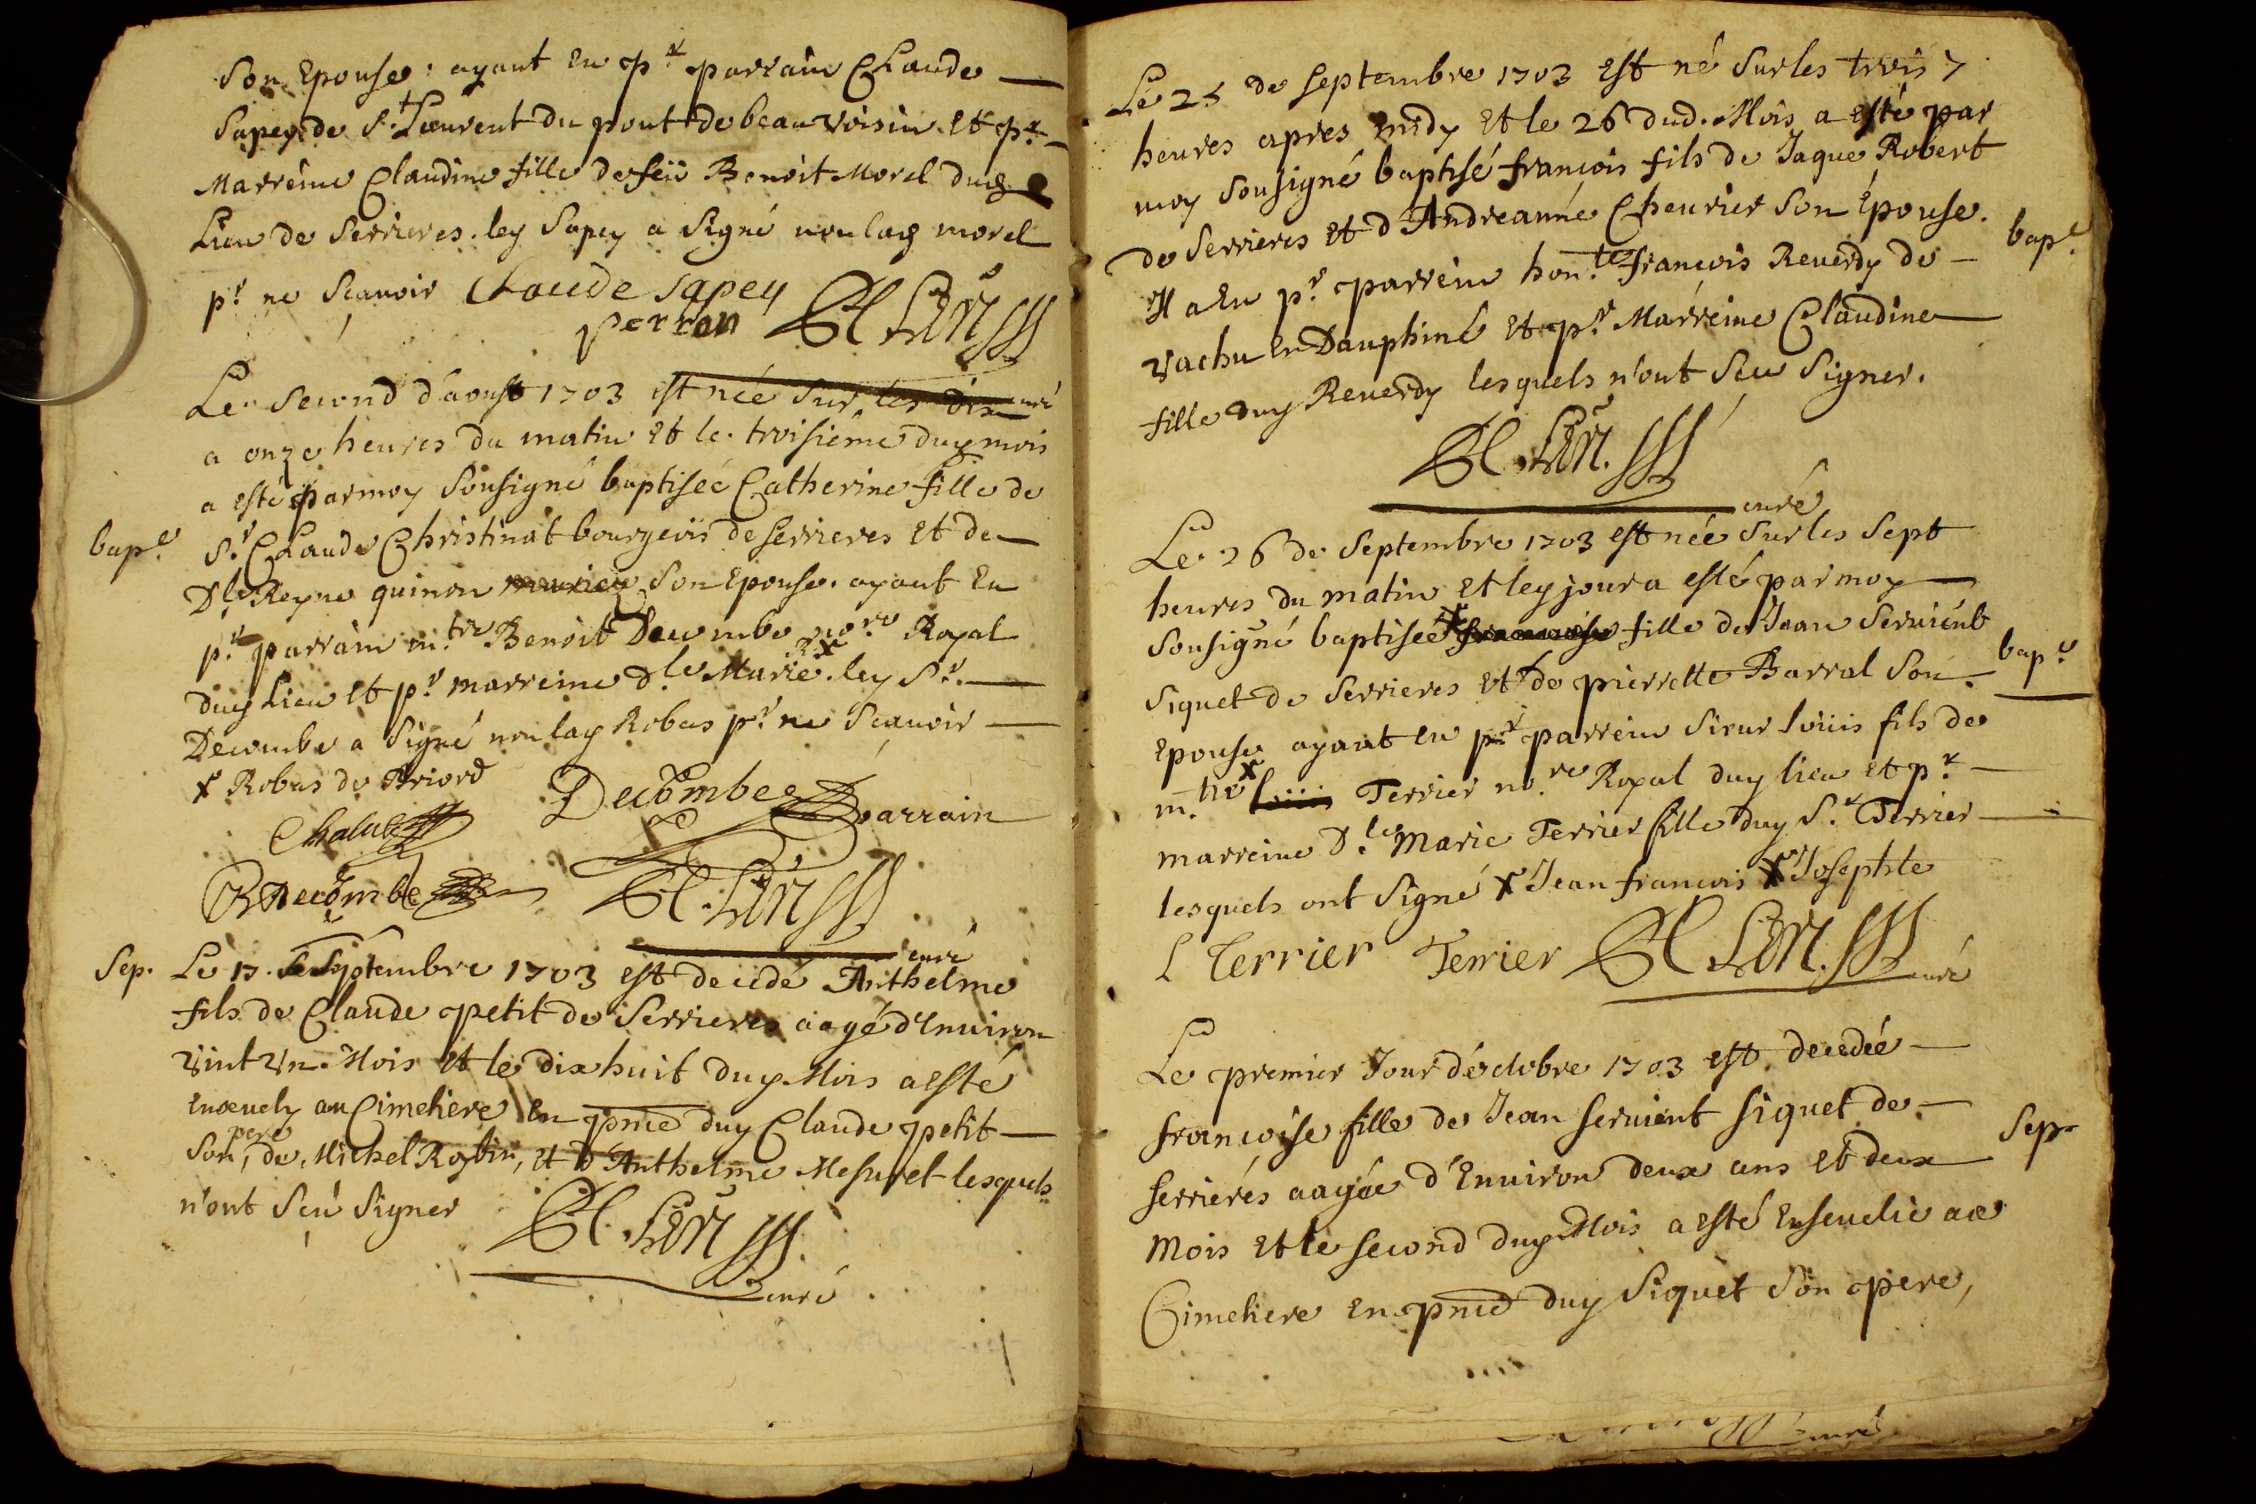 Son Epouse: ayant Eu pr. parrain Claude
Sapey de St. Laurent du pont de beauvoisin. et pr.
Marreine Claudine fille de feü Benoit Morel dud.
Lieu de Serrieres. led Sapey a Signé non lad morel
pr. ne Scavoir Claude sapey
perron
Le Second d'aoust 1703 est née Sur les dix curé
a onze heures du matin et le troisiéme dud mois
a esté par moy Sousigné baptisée Catherine fille de
bape. Sr. Claude Christinat bourgeois de Serrieres et de
Dle. Reyne quinon Son Epouse. ayant Eu
pr. parrain m.tre Benoit Decombe no.re Royal
dud Lieu et pr. marreine dle Marie x. led Sr.
Decombe a Signé non lad Robas pr. ne Scavoir
x Robas de Briord
Decombe parrain
Decombe
curé
Sep. Le 17. Septembre 1703 est decedé Anthelme
fils de Claude petit de Serrieres aagé d'Environ
vint vn Mois et le dix huit dud Mois a esté
Ensevely au Cimetiere En pnce dud Claude petit
Son pere, de Michel Roybin, et d'Anthelme Mesurel lesquels
n'ont Sçu Signer
curé
Le 25 de Septembre 1703 est né Sur les trois
heures apres midy et le 26 dud. Mois a esté par
moy Sousigné baptisé françois fils de Jaque Robert
de Serrieres et d'Andreanne Cheurier Son Epouse.
bape.
Il a Eu pr. parrein hon.te françois Reuerdy de
vachu En Dauphiné et pr. Marreine Claudine
fille dud Reuerdy lesquels n'ont Sceu Signer.
curé
Le 26 de Septembre 1703 est née Sur les Sept
heures du matin et led jour a esté par moy
Sousigné baptisée x francoise fille de Jean Seruient
bape.
Siquet de Serrieres et de pierrette Barral Son
Epouse ayant eu pr. parrein Sieur Loüis fils de
m.tre x Loüis Terrier no.re Royal dud lieu et pr.
marreine Dle. Marie Terrier fille dud Sr. Terrier
lesquels ont Signé x Jean francois x Josephte
L Terrier Terrier
curé
Le premier Jour d'octobre 1703 est decedée
françoise fille de Jean Seruient Siquet de
Sep.
Serrieres aagée d'Enuiron deux ans et deux
Mois et le Second dud Mois a esté Enseuelie au
Cimetiere En pnce dud Siquet Son pere,
curé